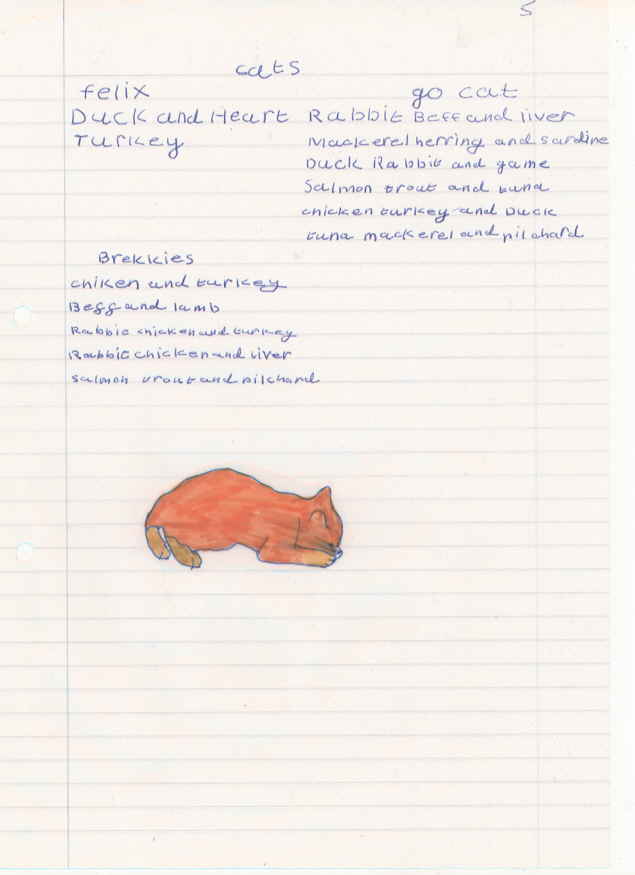 5
cats
felix
Duck and Heart
Turkey
go cat
Rabbit Beff and liver
Mackerel herring and sardine
Duck Rabbit and game
Salmon trout and tuna
chicken turkey and Duck
tuna mackerel and pilchard
Brekkies
chiken and turkey
Beff and lamb
Rabbit chicken and turkey
Rabbit chicken and liver
salmon trout and pilchard